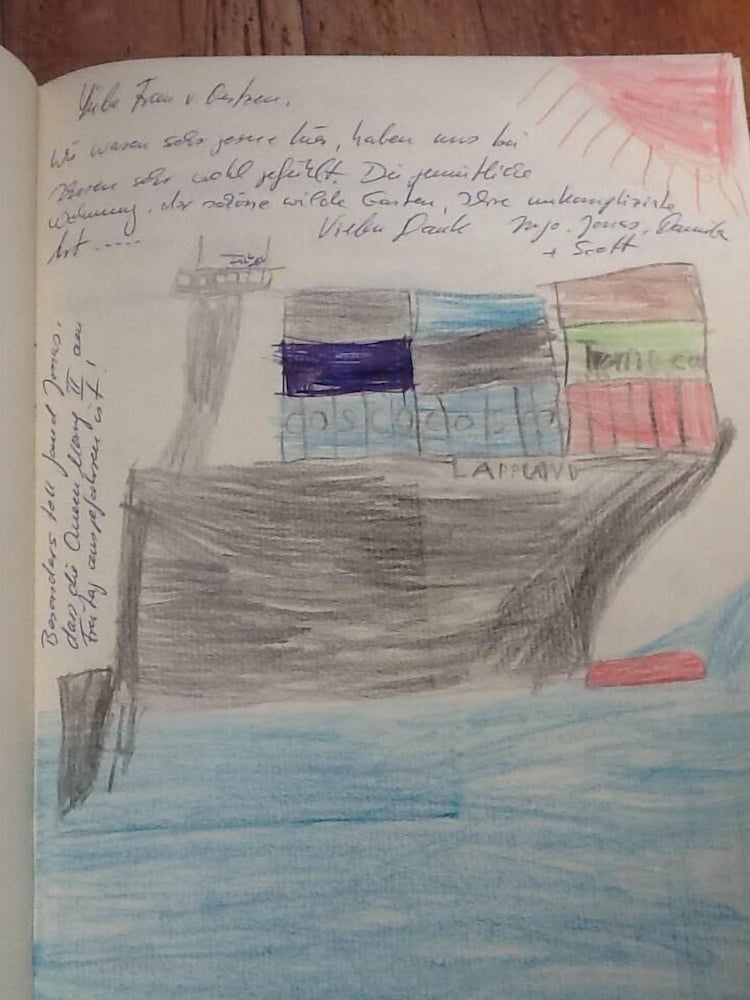 Liebe Frau v Oertzen,
wir waren sehr gerne hier, haben uns bei
Ihnen sehr wohl gefühlt. Die gemütliche
Wohnung, der schöne wilde Garten, Ihre unkomplizierte
Art .....
Vielen Dank Ingo, Jonas, Daniela
+ Scott
Besonders toll fand Jonas,
dass die Queen Mary II am
Freitag ausgefahren ist!
cosco cosco
LAPPLAND